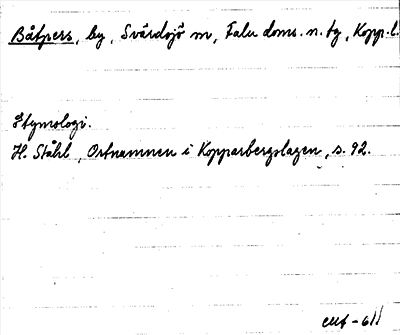 Båtpers, by, Svärdsjö sn, Falu doms. n. tg, Kopp. l.
Etymologi.
H. Ståhl, Ortnamnen i Kopparbergslagen, s. 92.